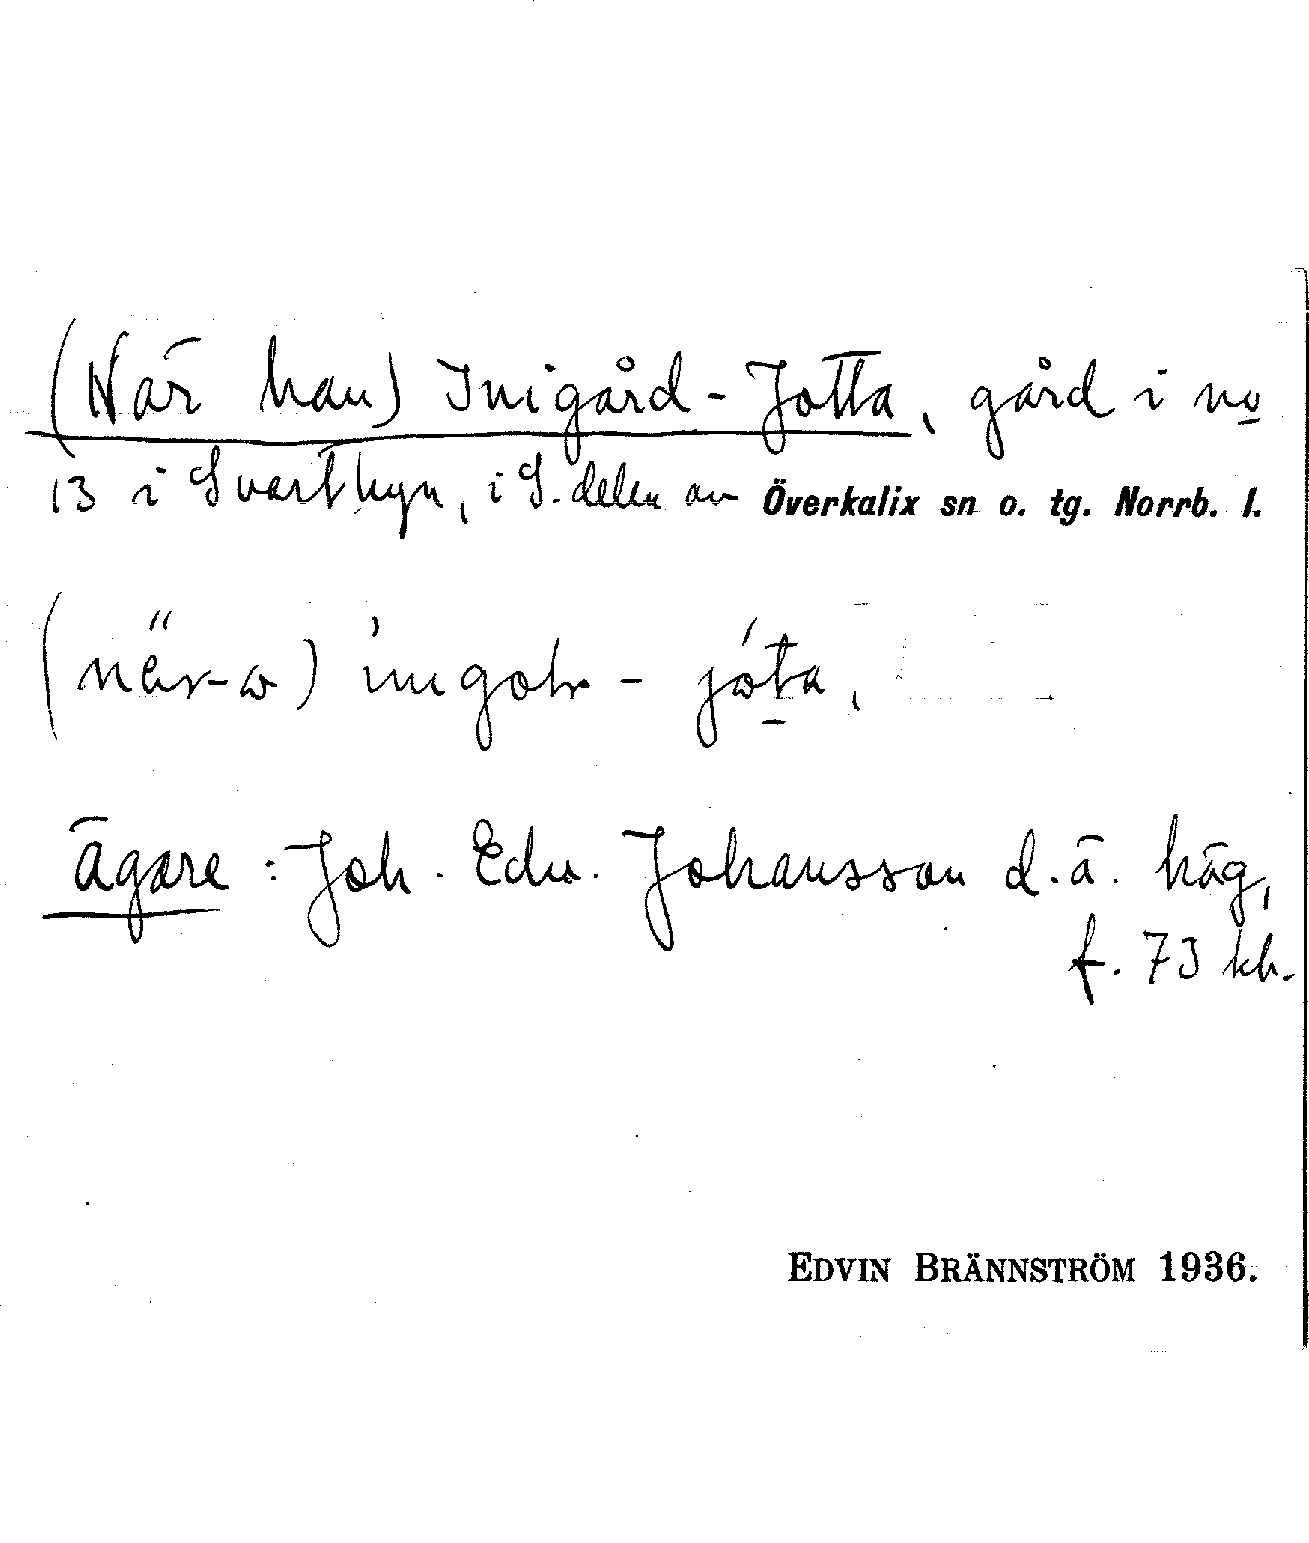 (När han) Inigård-Jotta, gård i no
13 i Svartbyn, i S. delen av Överkalix sn o. tg. Norrb. l.
Ägare: Joh. Edv. Johansson d.ä. häg,
f. 73 kb.
EDVIN BRÄNNSTRÖM 1936.